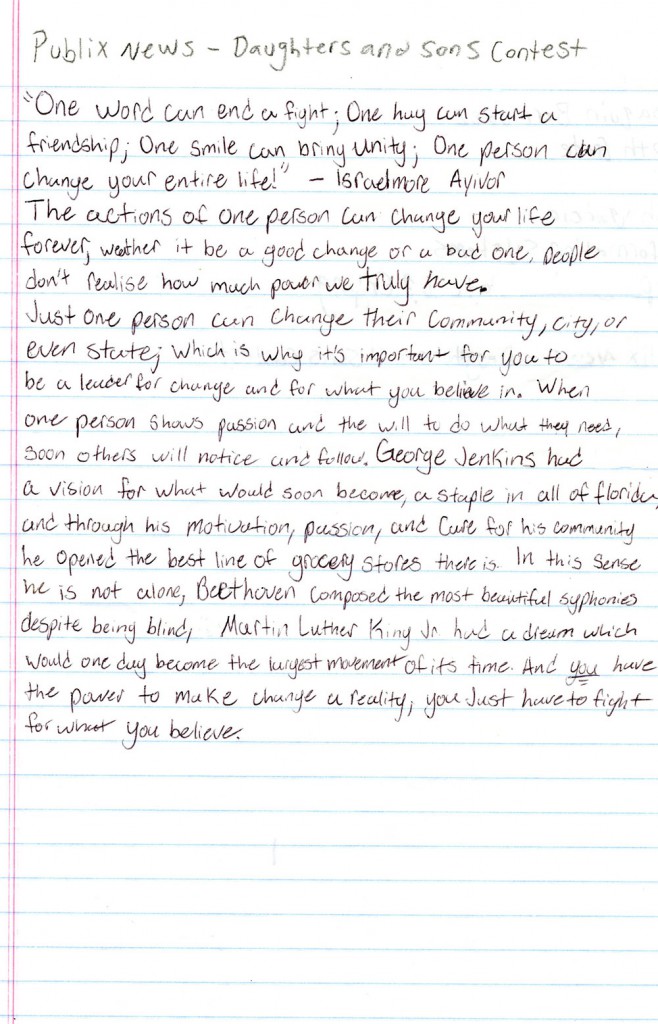 Publix News - Daughters and Sons Contest
"One word can end a fight; One hug can start a
friendship; One smile can bring unity; One person can
change your entire life!" - Israelmore Ayivor
The actions of one person can change your life
forever, weather it be a good change or a bad one, people
don't realise how much power we truly have.
Just one person can change their community, city, or
even state; which is why it's important for you to
be a leader for change and for what you believe in. When
one person shows passion and the will to do what they need,
soon others will notice and follow. George Jenkins had
a vision for what would soon become, a staple in all of florida,
and through his motivation, passion, and care for his community
he opened the best line of grocery stores there is. In this sense
he is not alone, Beethoven composed the most beautiful syphonies
despite being blind, Martin Luther King Jr. had a dream which
would one day become the largest movement of its time. And you have
the power to make change a reality, you just have to fight
for what you believe.